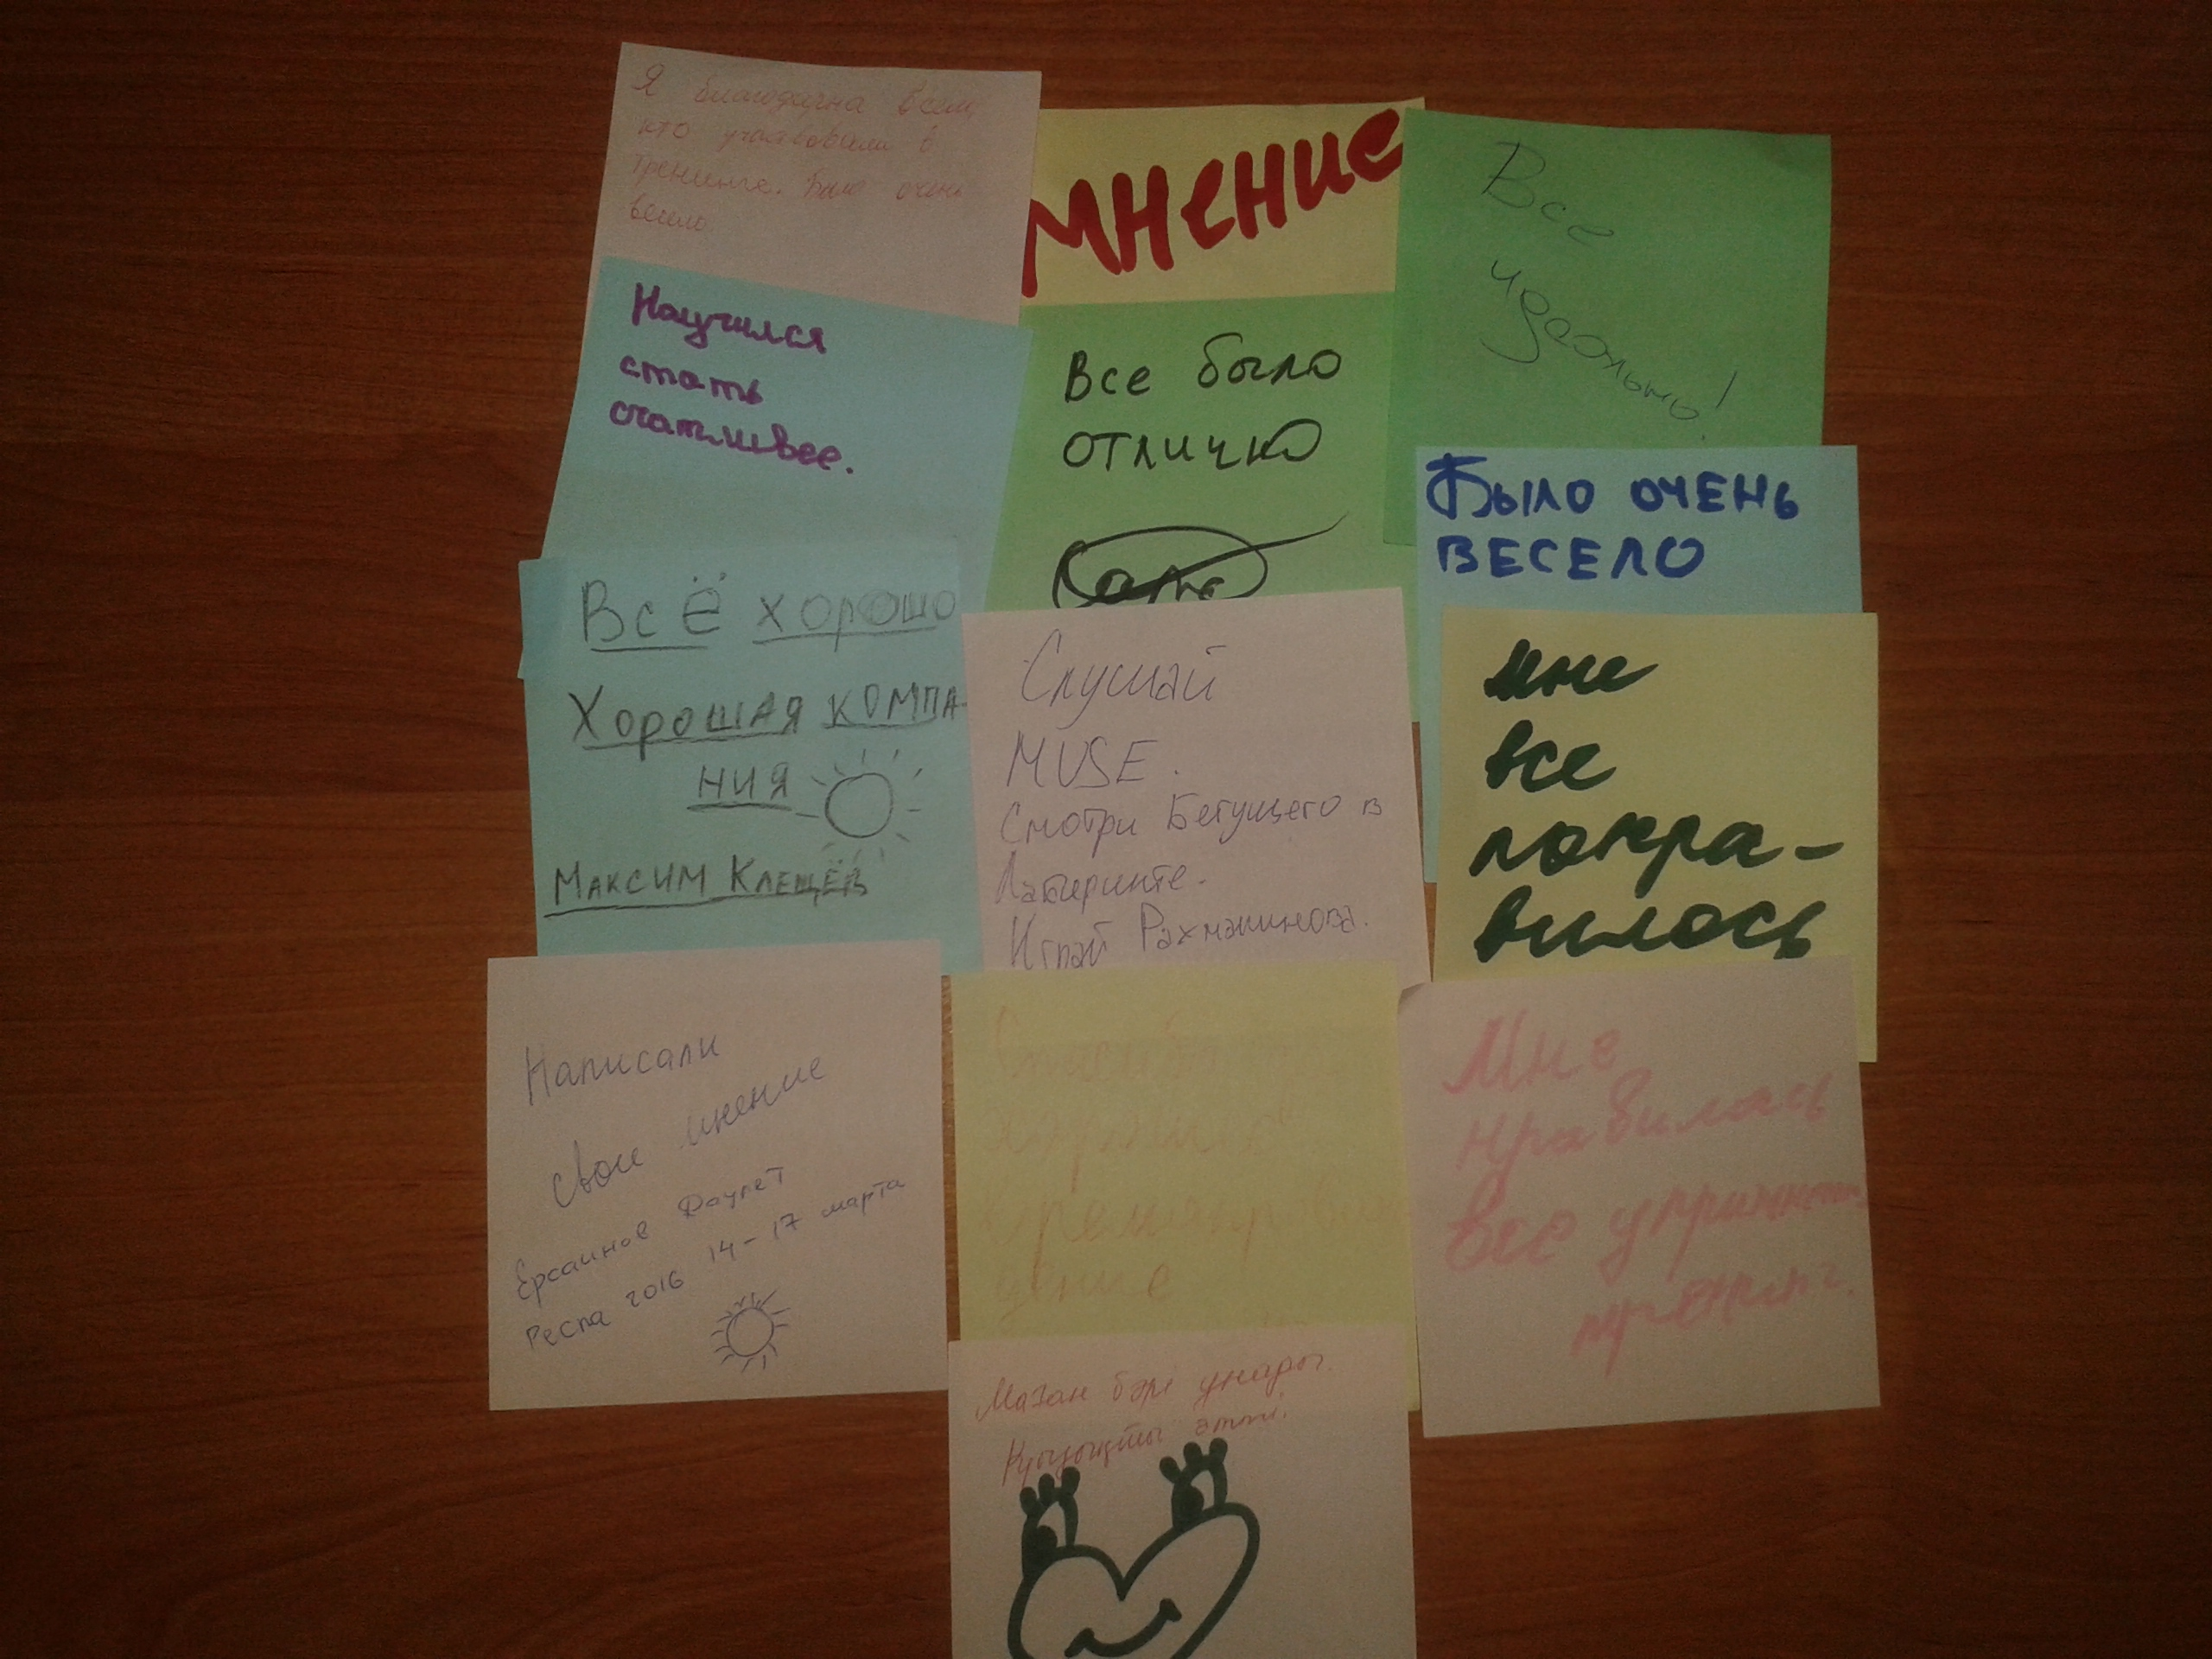 Я благодарна всем,
кто участвовали в
тренинге. Было очень
весело
мнение
Все
идеально!
Научился
стать
счатливее.
Все было
отлично
Было очень
весело
Всё хорошо
Хорошая компа-
ния
Максим Клещёв
Слушай
MUSE.
Смотри Бегущего в
Лабиринте.
Играй Рахманинова.
мне
все
понра-
вилось
Написали
свои мнение
Ерсаинов Даулет
Респа 2016 14-17 марта
Мне
нравилось
все
Маған бәрі ұнады.
Қызықты өтті.